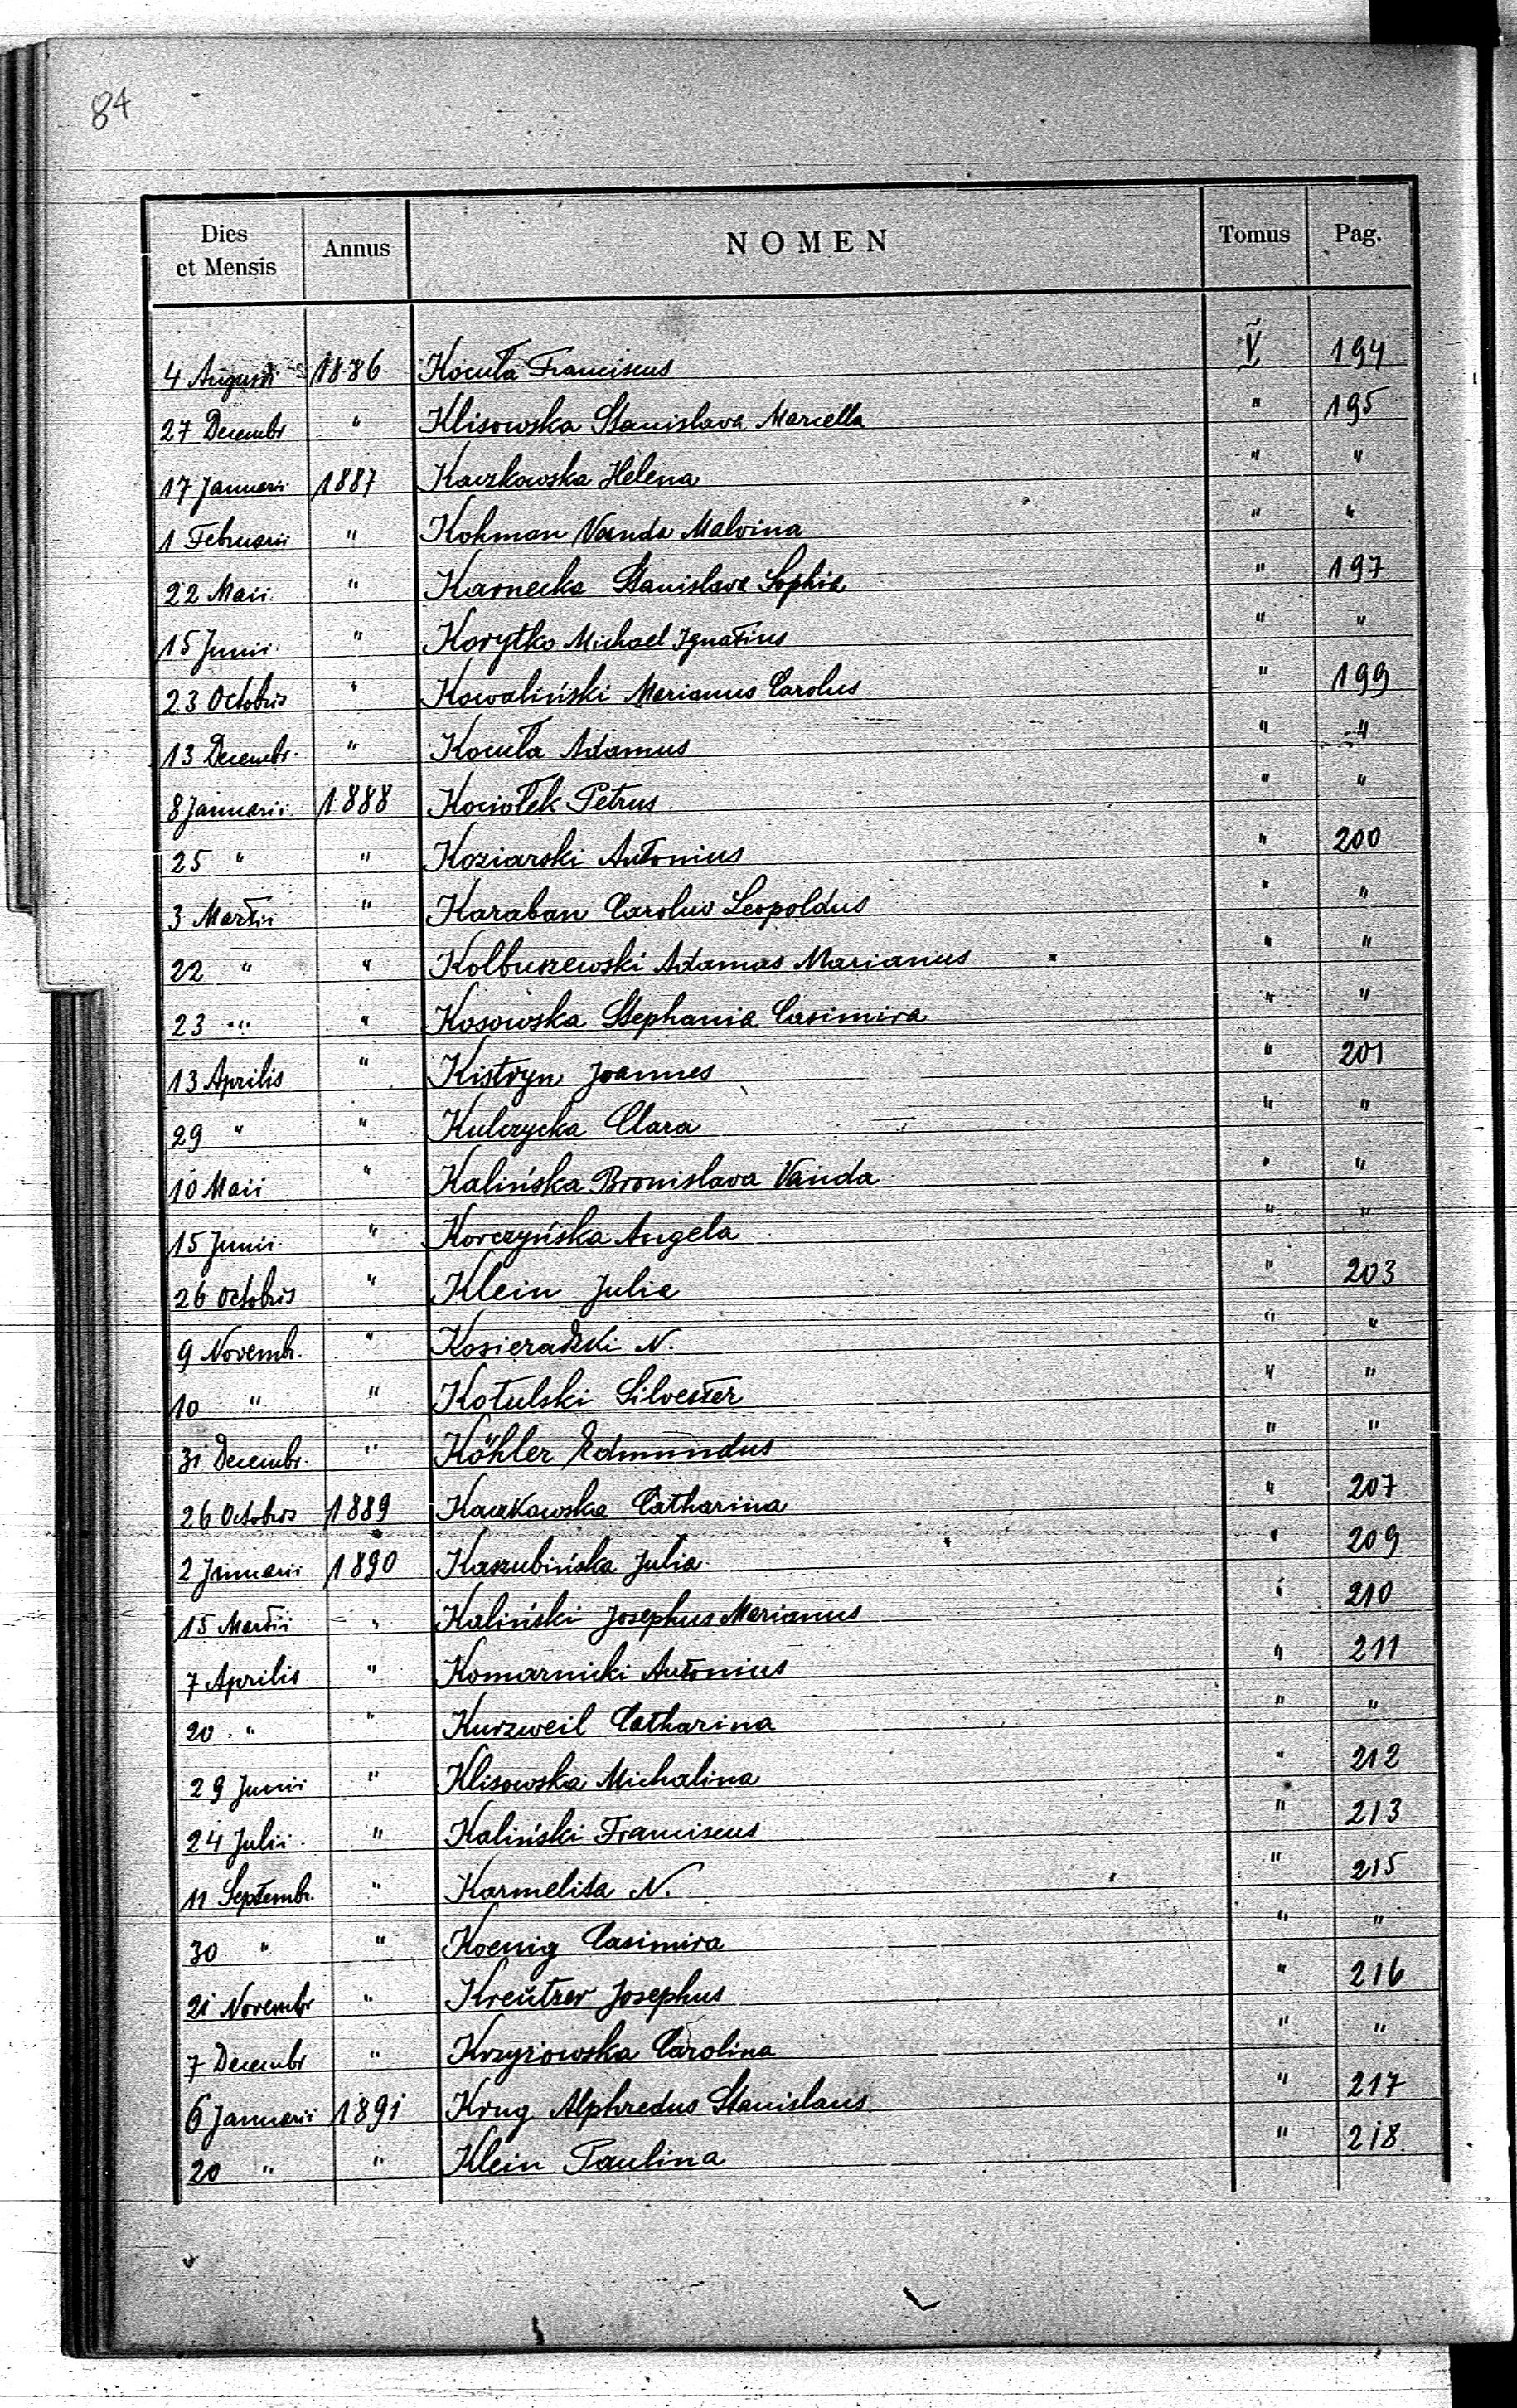 84
Dies et Mensis Annus NOMEN Tomus Pag.
4 Augusti 1886 Kocuła Franciscus V 194
27 Decembr " Klisowska Stanislava Marcella " 195
17 Januarii 1887 Kaczkowska Helena " "
1 Februarii " Kohman Vanda Malvina " "
22 Maii " Karnecka Stanislava Sophia " 197
15 Junii " Korytko Michael Ignatius " "
23 Octobris " Kowaliński Marianus Carolus " 199
13 Decembr. " Kocuła Adamus " "
8 Januarii 1888 Kociołek Petrus " "
25 " " Koziarski Antonius " 200
3 Martii " Karaban Carolus Leopoldus " "
22 " " Kolbuszewski Adamus Marianus " "
23 " " Kosowska Stephania Casimira " "
13 Aprilis " Kistryn Joannes " 201
29 " " Kulczycka Clara " "
10 Maii " Kalińska Bronislava Vanda " "
15 Junii " Korczyńska Angela " "
26 Octobris " Klein Julia " 203
9 Novembr. " Kosieradzki N. " "
10 " " Kotulski Silvester " "
31 Decembr. " Köhler Edmundus " "
26 Octobris 1889 Kaczkowska Catharina " 207
2 Januarii 1890 Kaszubińska Julia " 209
15 Martii " Kaliński Josephus Marianus " 210
7 Aprilis " Komarnicki Antonius " 211
20 " " Kurzweil Catharina " "
29 Junii " Klisowska Michalina " 212
24 Julii " Kaliński Franciscus " 213
11 Septembr. " Karmelita N. " 215
30 " " Koenig Casimira " "
21 Novembr " Kreutzer Josephus " 216
7 Decembr " Krzyżowska Carolina " "
6 Januarii 1891 Krug Alphredus Stanislaus " 217
20 " " Klein Paulina " 218